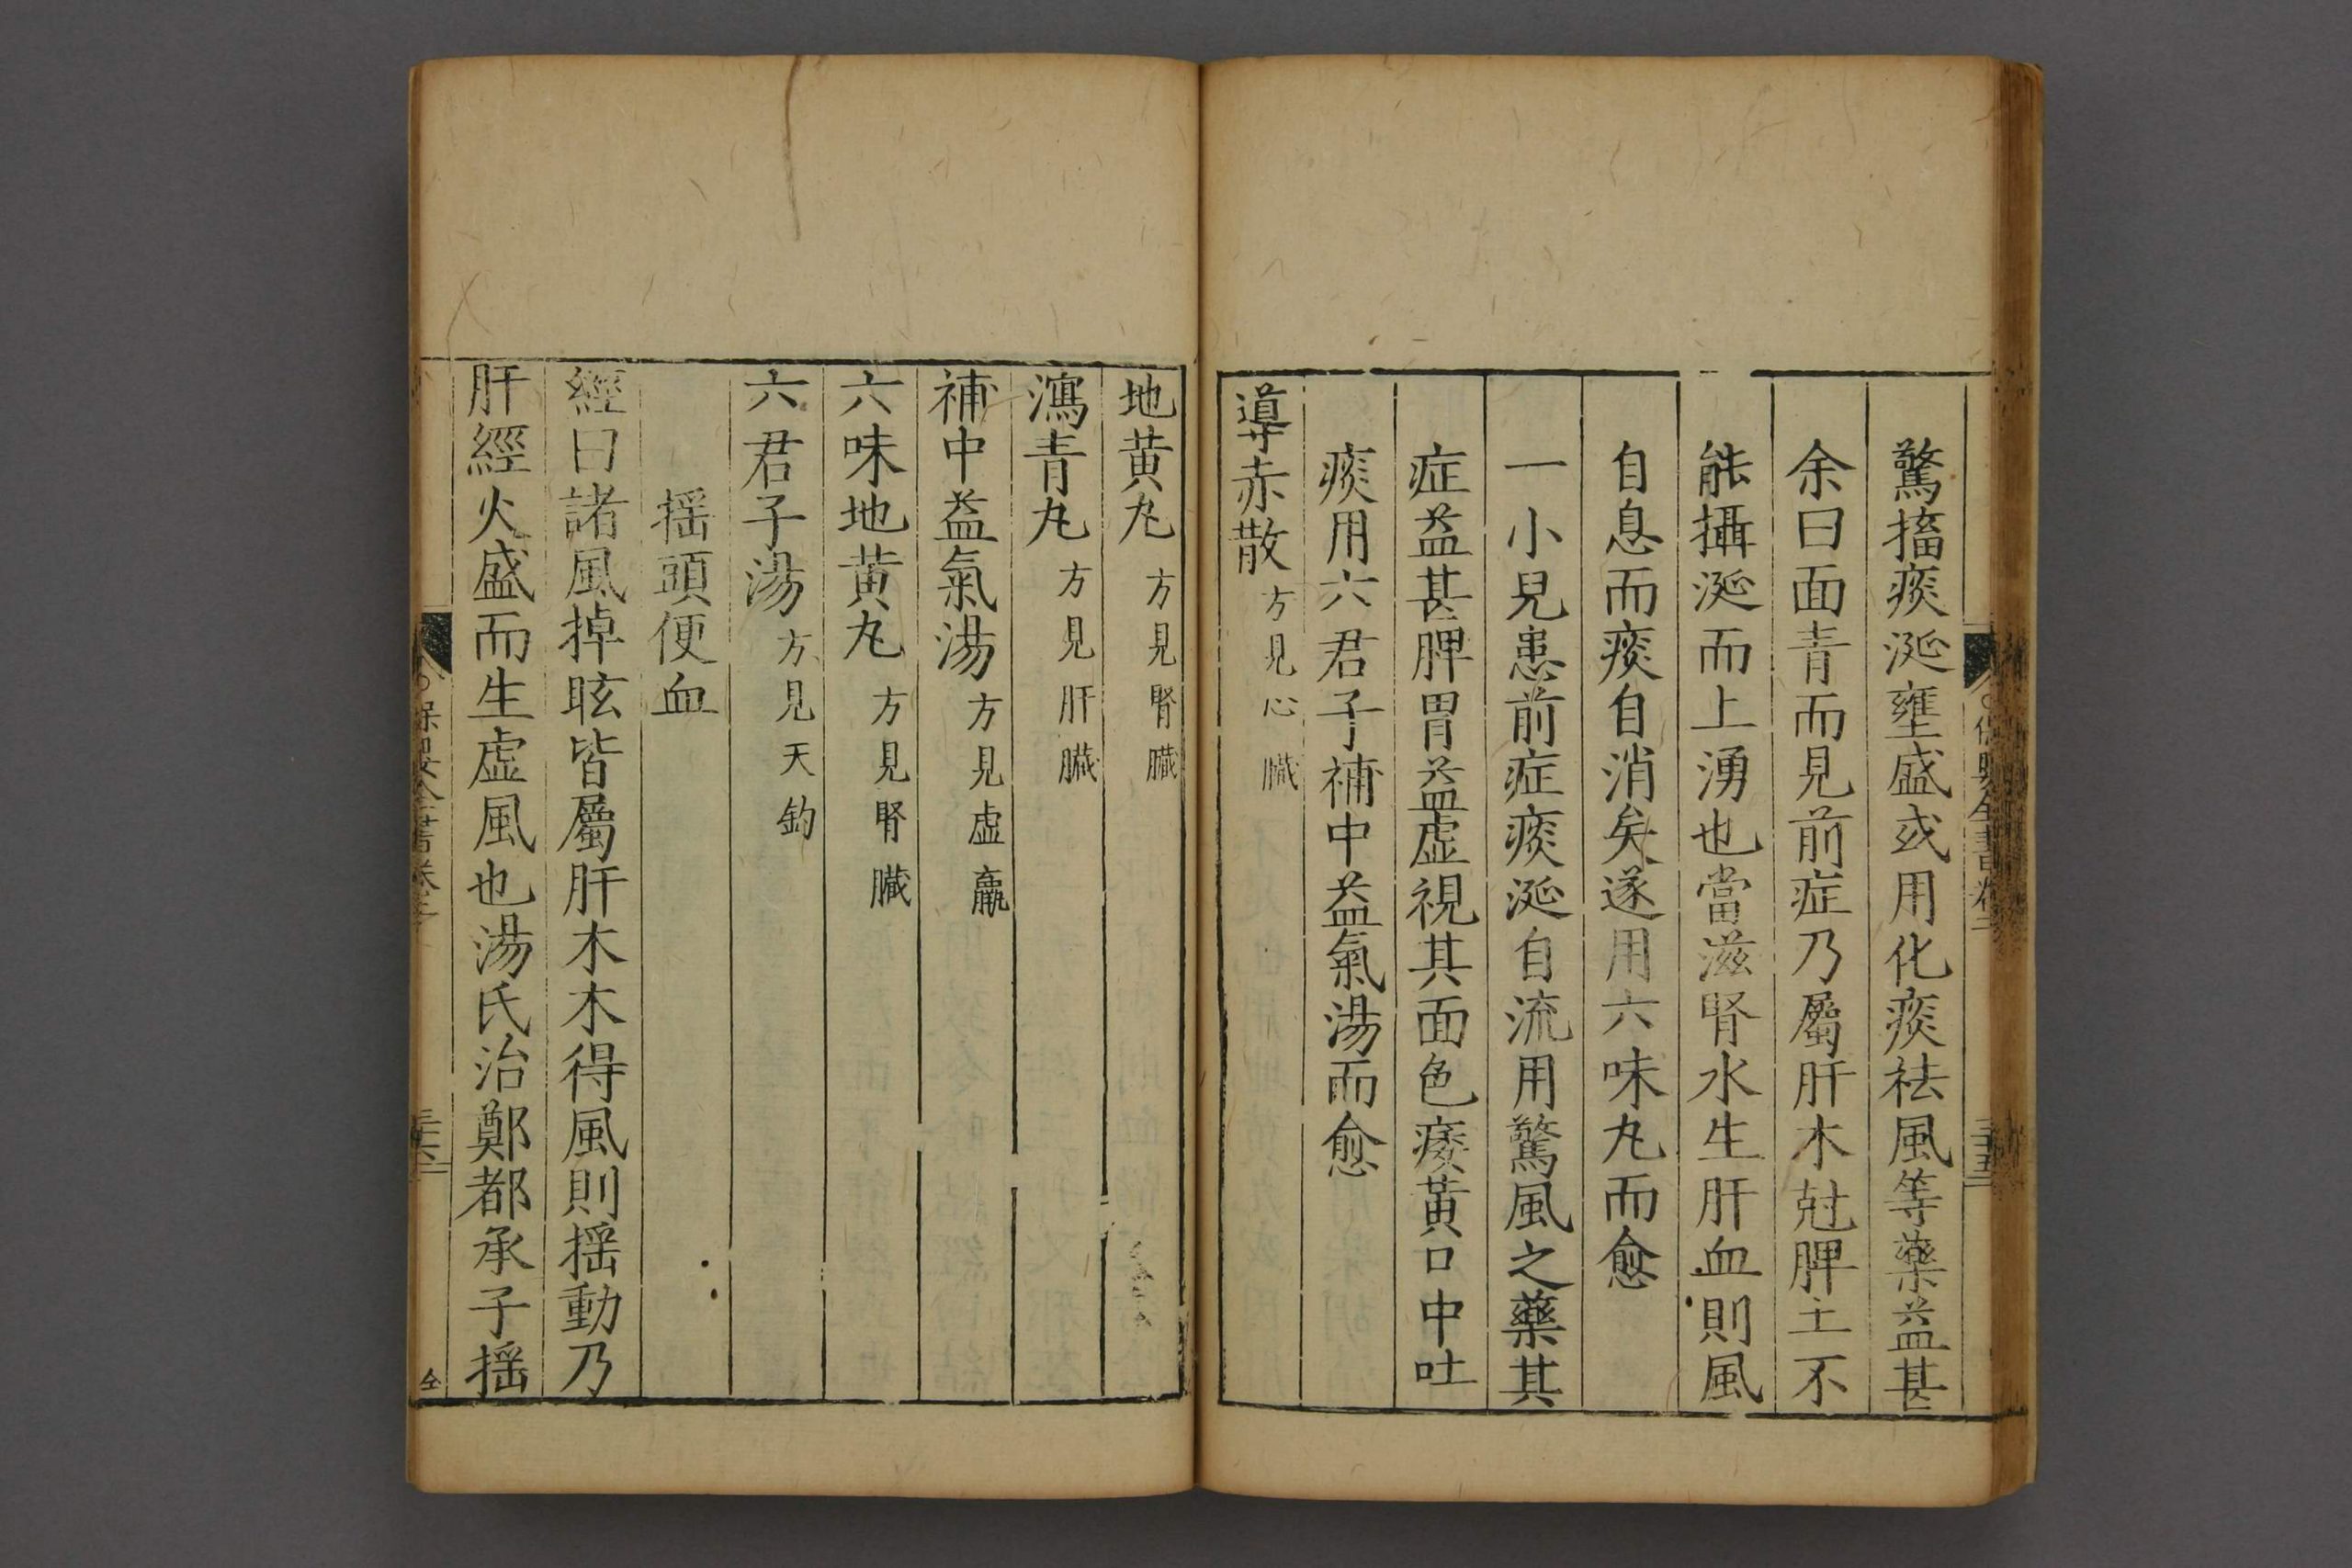 驚搐痰涎壅盛或用化痰祛風等藥益甚
余曰面青而見前症乃屬肝木尅脾土不
能攝涎而上湧也當滋腎水生肝血則風
自息而痰自消矣遂用六味丸而愈
一小兒患前症痰涎自流用驚風之藥其
症益甚脾胃益虛視其面色痿黃口中吐
痰用六君子補中益氣湯而愈
導赤散方見心臟
地黃丸方見腎臟
瀉青丸方見肝臟
補中益氣湯方見虛羸
六味地黃丸方見腎臟
六君子湯方見天釣
搖頭便血
經曰諸風掉眩皆屬肝木木得風則搖動乃
肝經火盛而生虛風也湯氏治鄭都承子搖
保嬰全書卷三
全